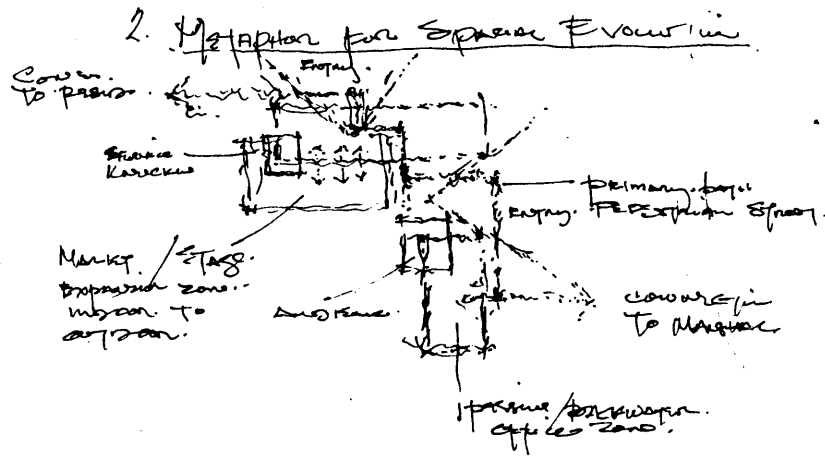 2. METAPHOR FOR SPATIAL EVOLUTION
ENTRY.
TO
SERVICE
KNUCKLE
PRIMARY
ENTRY. PEDESTRIAN STREET.
MARKET / STAGE.
EXPANSION ZONE..
INDOOR TO
OUTDOOR.
AUDIENCE.
CONNECTION
TO
PASSIVE / BACKWATER.
OFFICE ZONE.